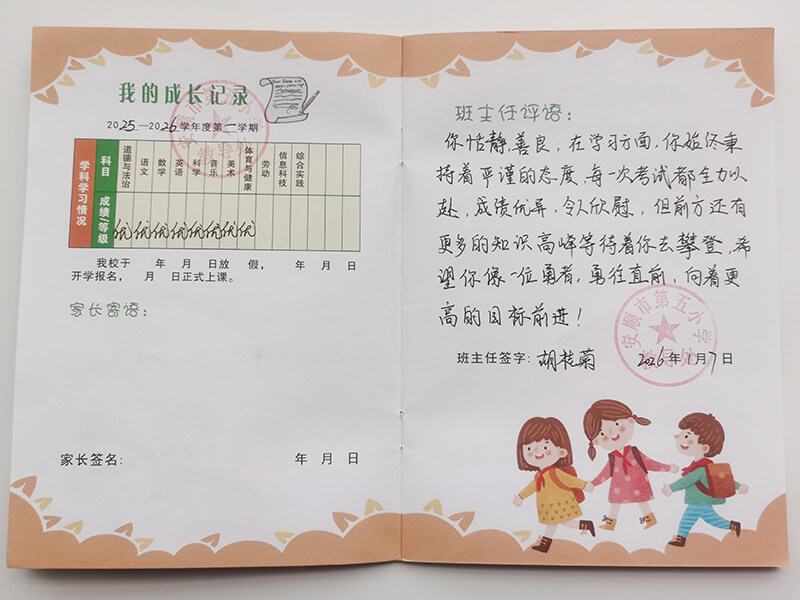 我的成长记录
2025—2026学年度第一学期
学科学习情况
科目
道德与法治
语文
数学
英语
科学
音乐
美术
体育与健康
劳动
信息科技
综合实践
成绩/等级
优 优 优 优 优 优 优 优
我校于 年 月 日放 假, 年 月 日
开学报名, 月 日正式上课。
家长寄语:
家长签名: 年 月 日
班主任评语:
你恬静,善良,在学习方面,你始终秉
持着严谨的态度,每一次考试都全力以
赴,成绩优异,令人欣慰,但前方还有
更多的知识高峰等待着你去攀登,希
望你像一位勇者,勇往直前,向着更
高的目标前进!
安顺市第五小学
教导处
班主任签字: 胡桂菊 2026年1月7日